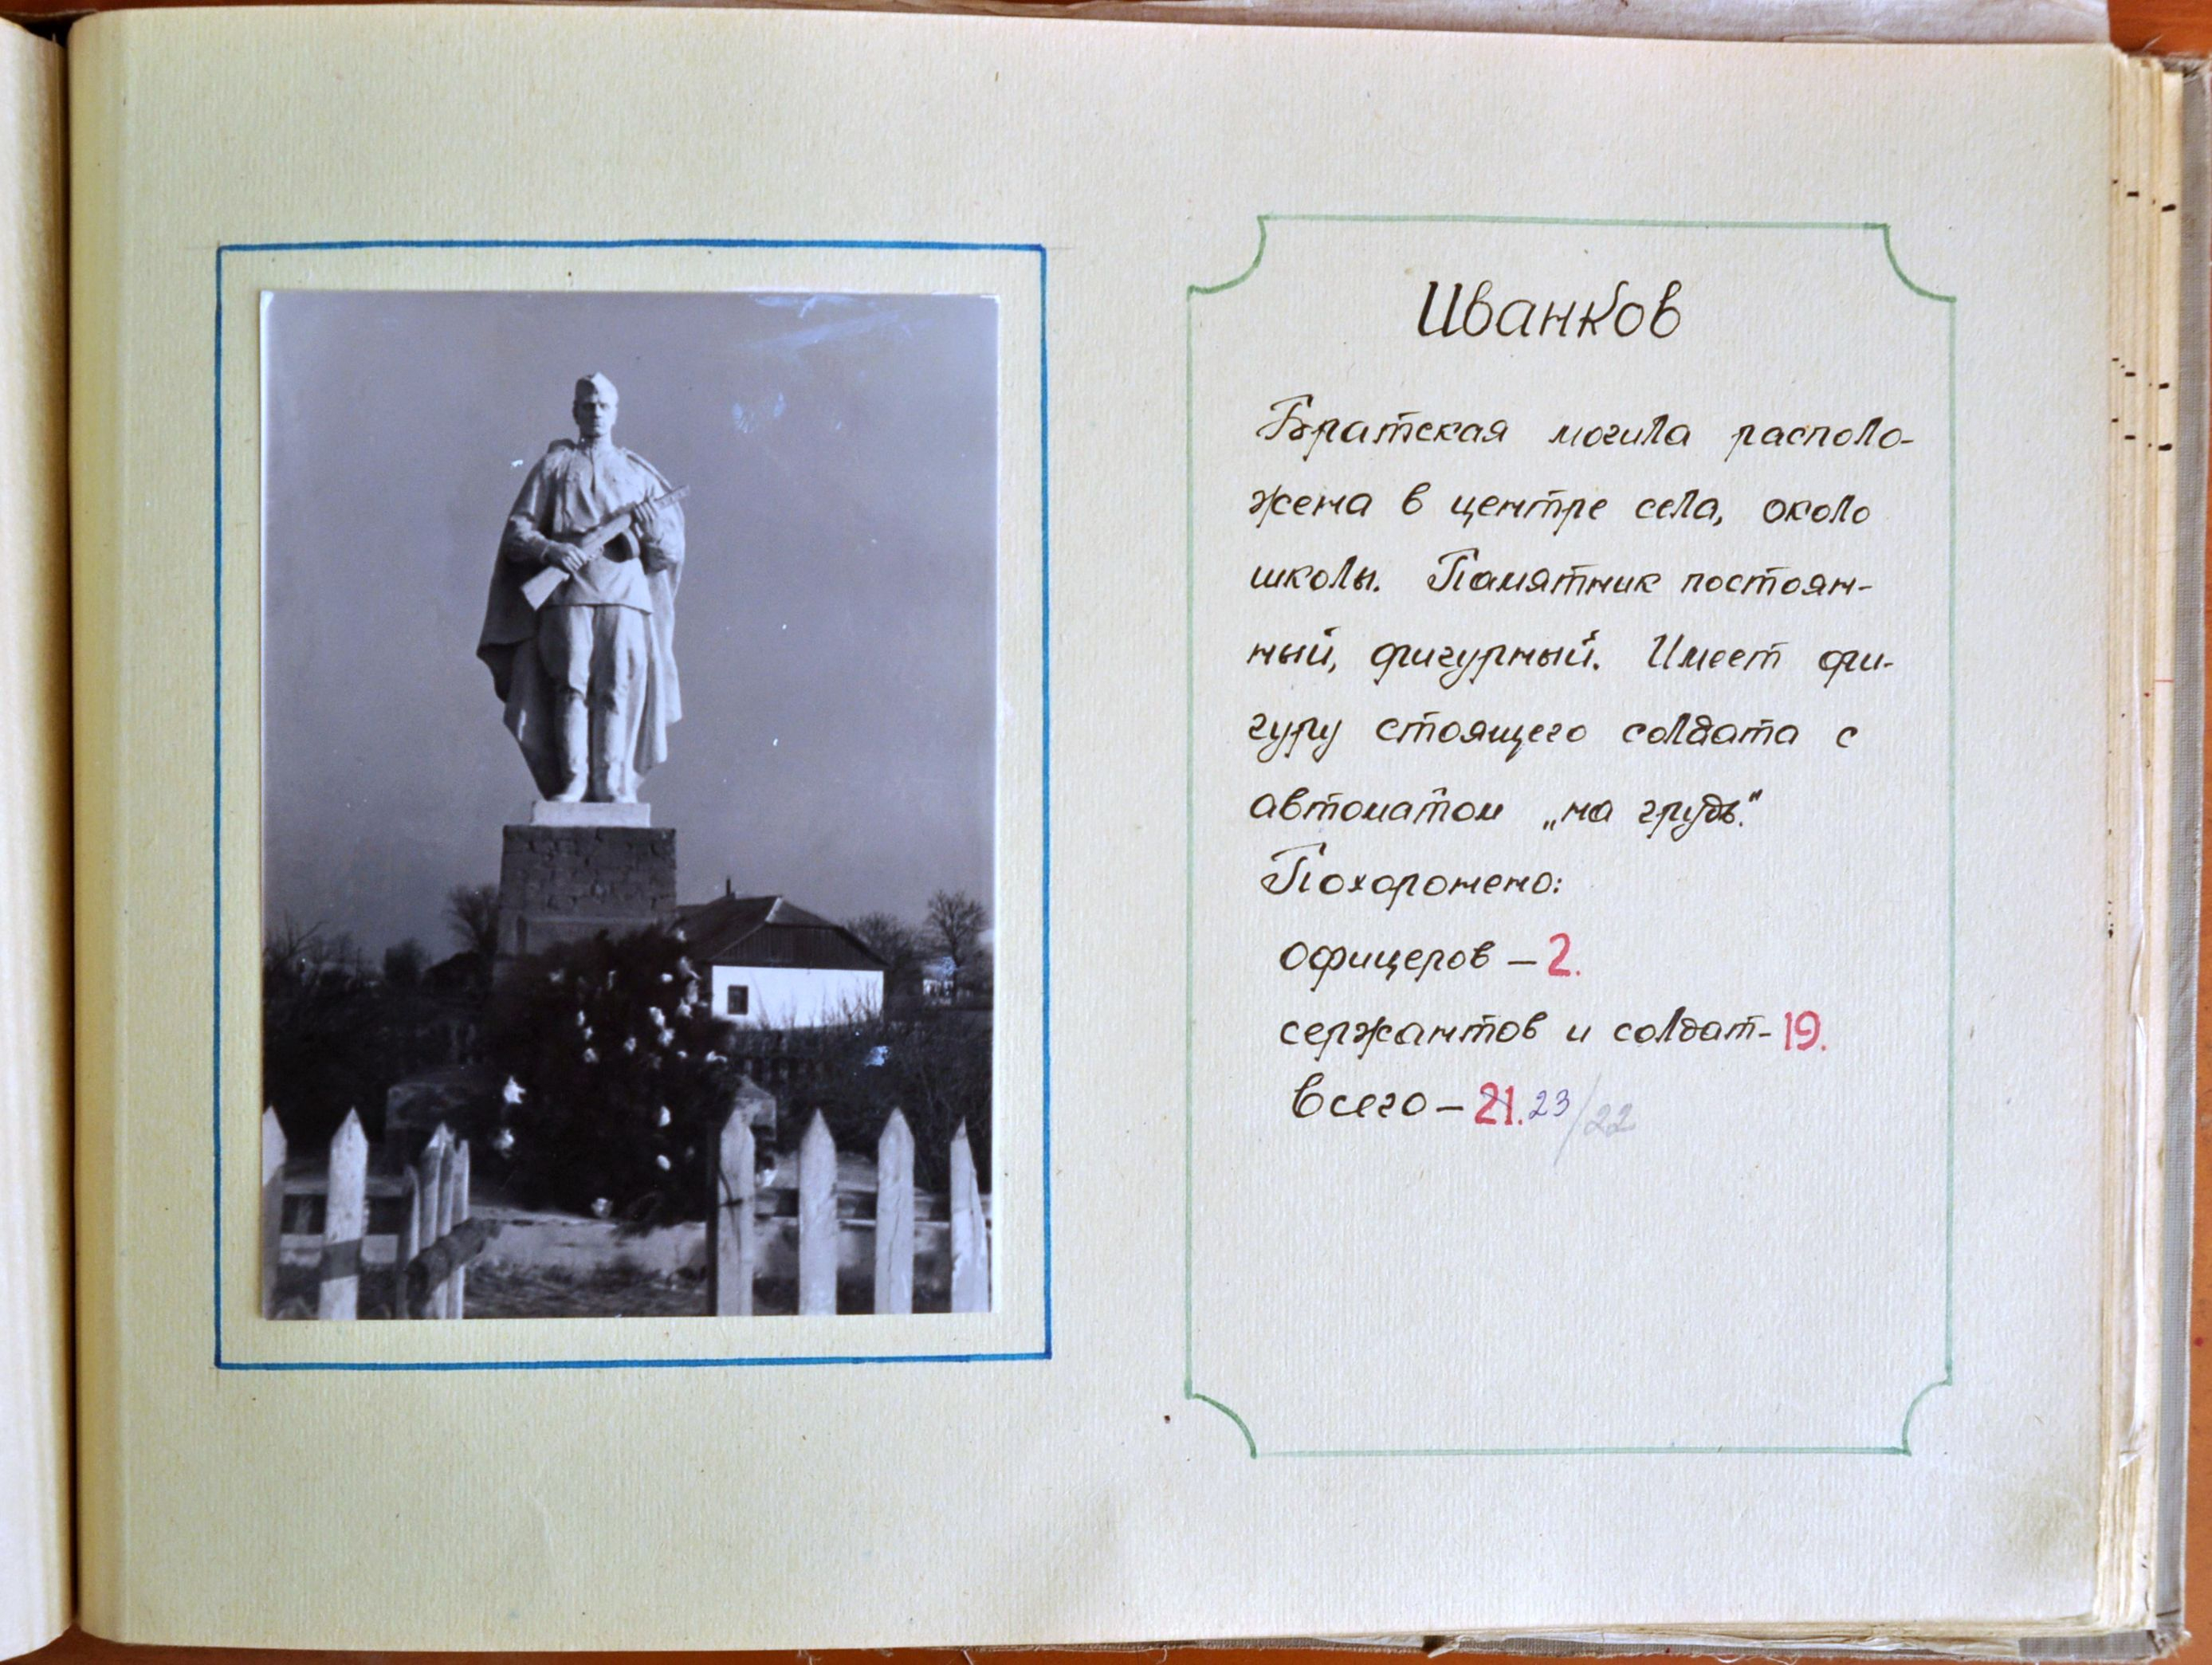 Иванков
Братская могила располо-
жена в центре села, около
школы. Памятник постоян-
ный, фигурный. Имеет фи-
гуру стоящего солдата с
автоматом „на грудь."
Похоронено:
офицеров – 2.
сержантов и солдат- 19.
Всего – 21. 23/22